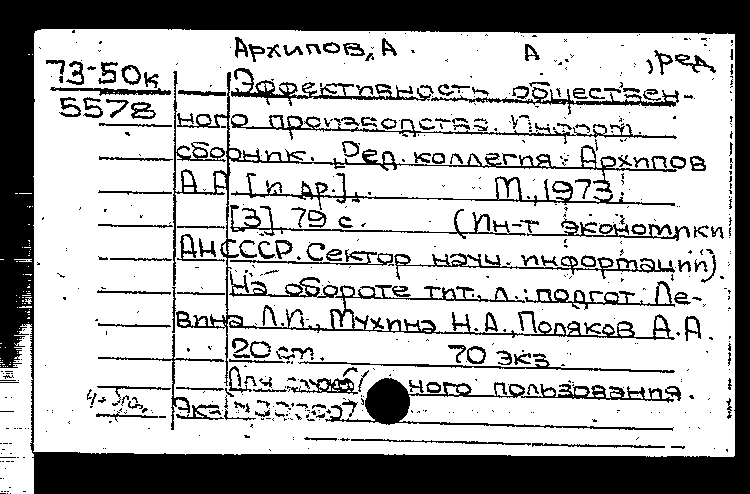 Архипов, А. А , ред
73-50к
Эффективность обществен-
5578
ного производства. Информ.
сборник. Ред. коллегия: Архипов
А.А [и др.].. М., 1973.
[3], 79 с. (Ин-т экономики
АН СССР. Сектор научн. информации).
На обороте тит. л.: подгот. Ле-
вина Л.И., Мухина Н.А., Поляков А.А.
20 см. 70 экз.
Для служебного пользования.
Экз